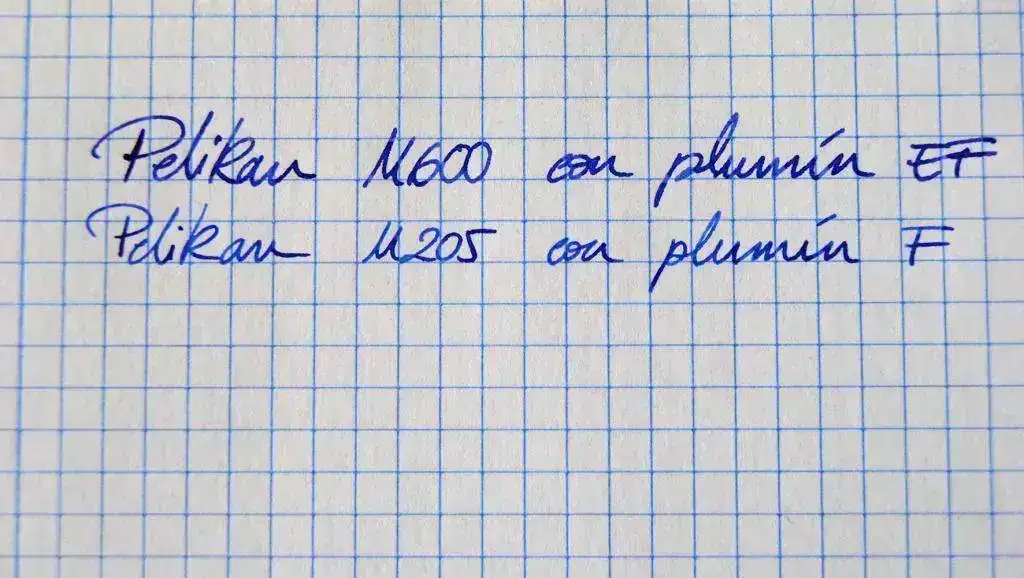 Pelikan M600 con plumín EF
Pelikan M205 con plumín F